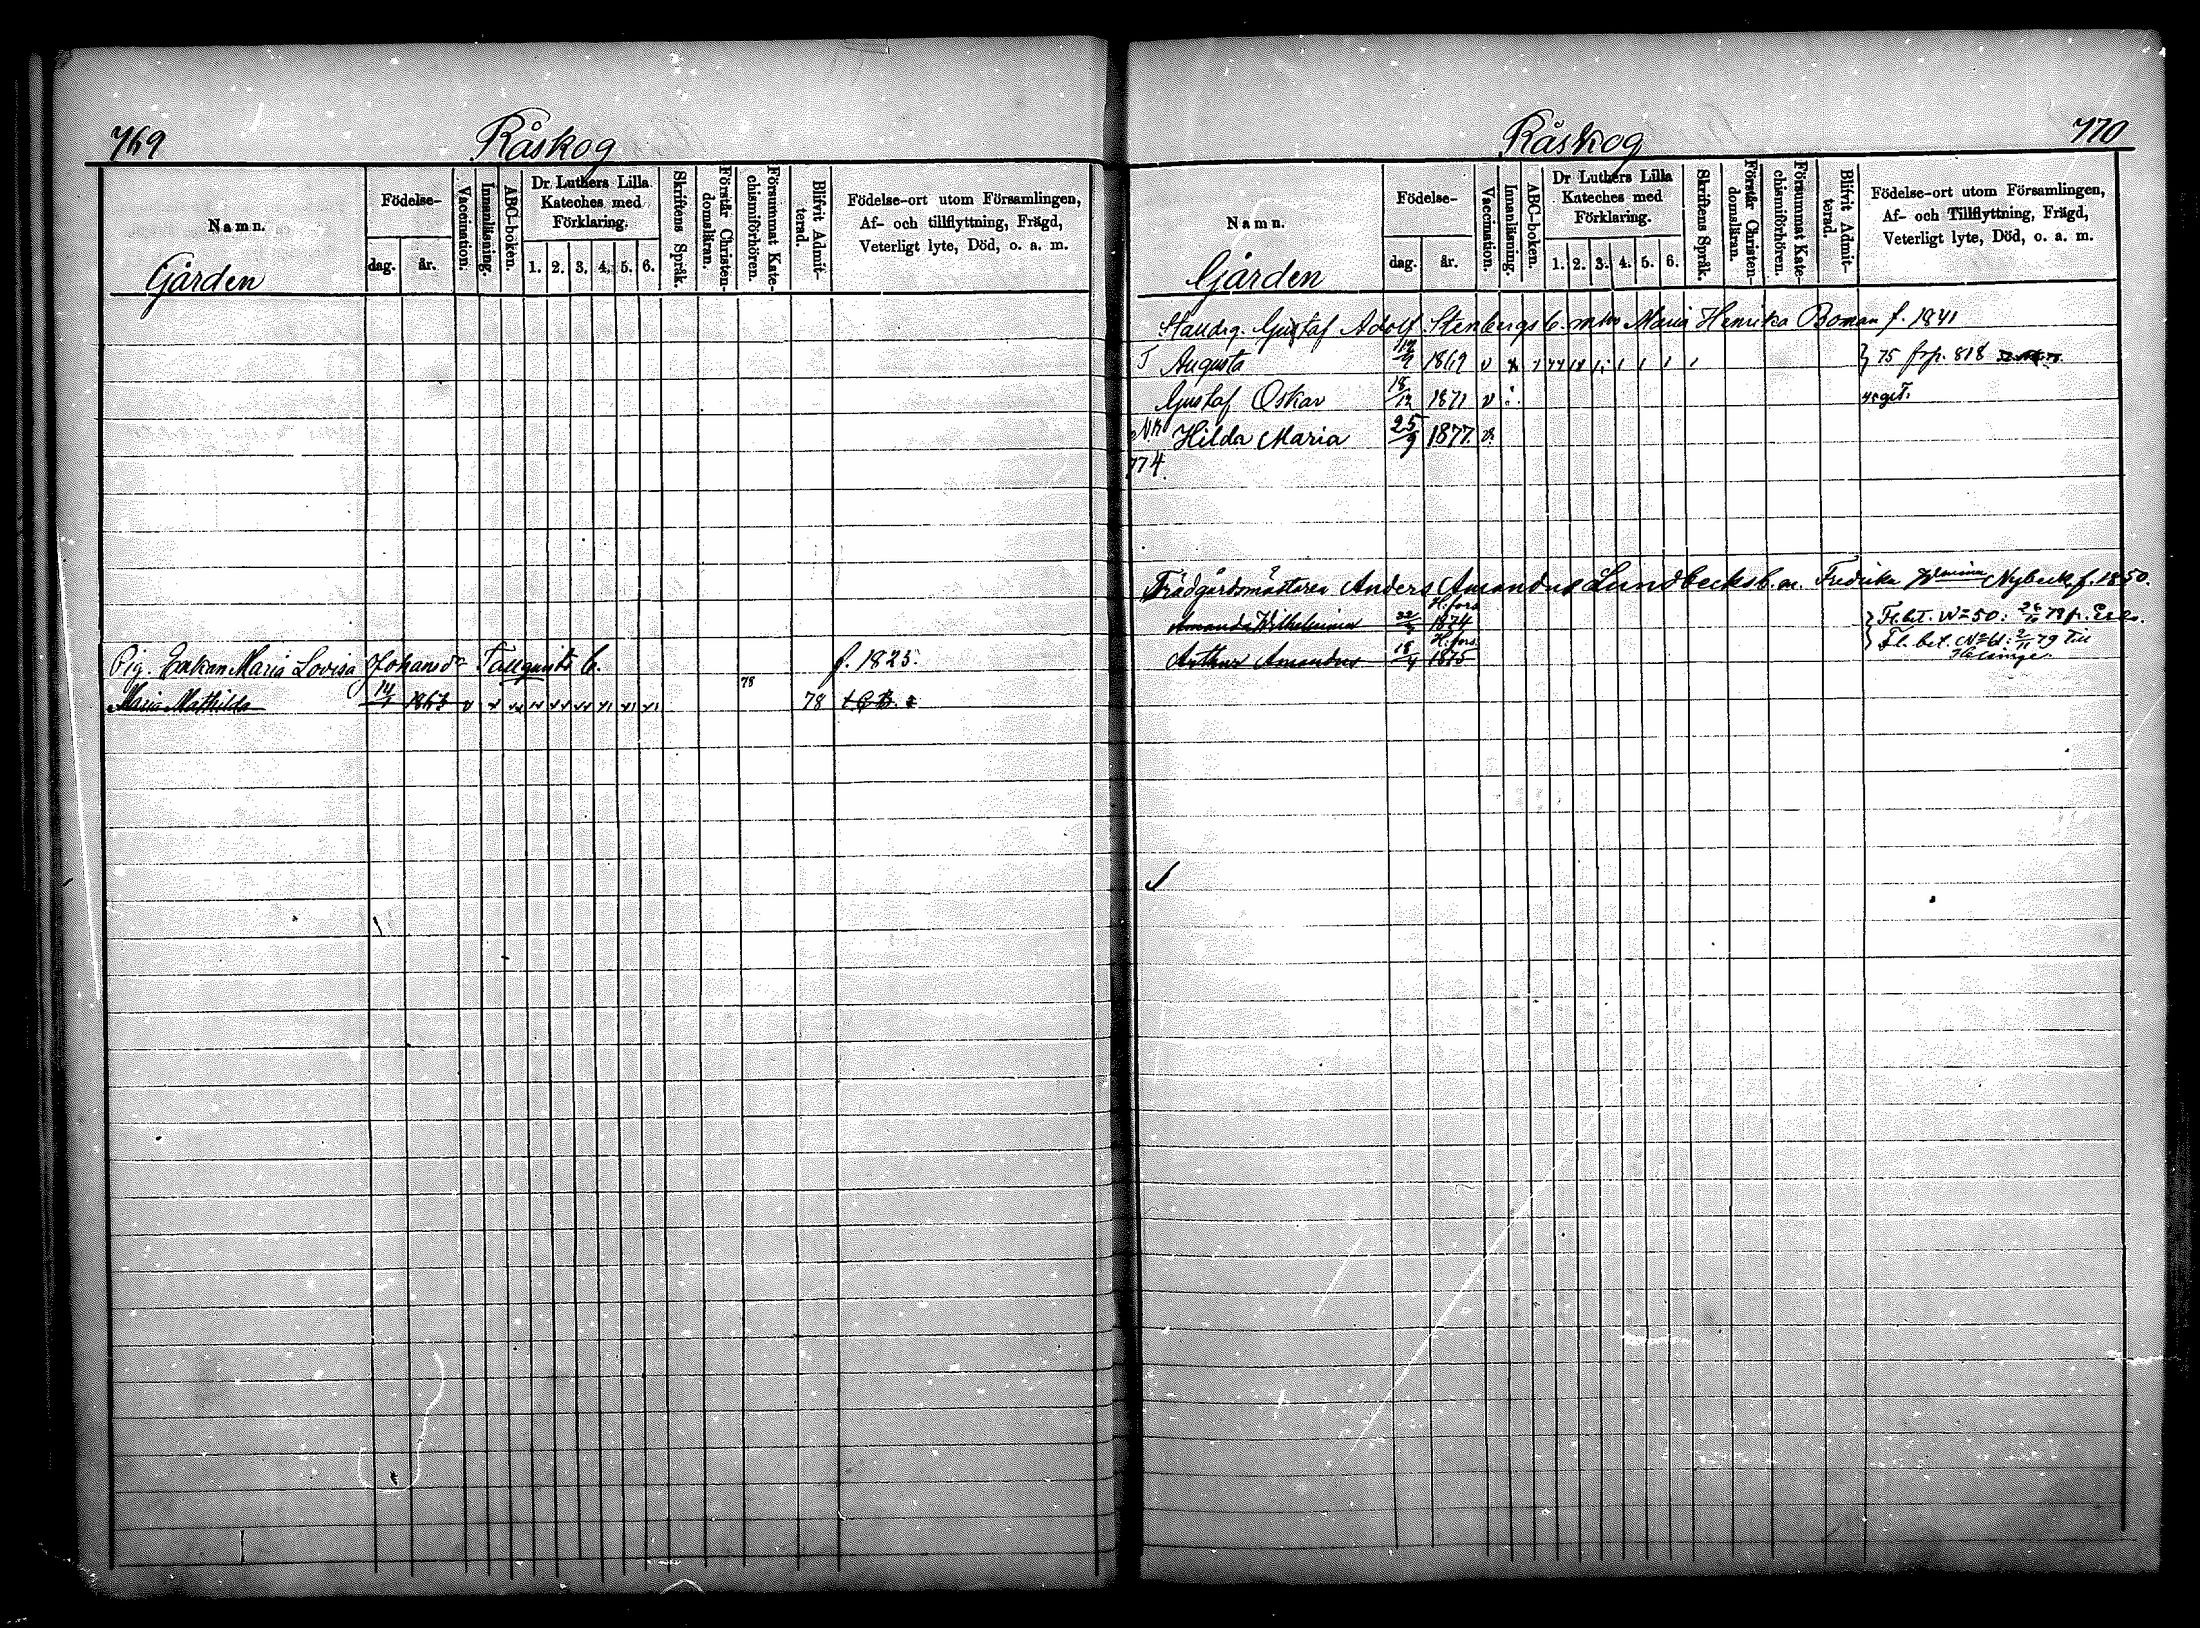 769
Råskog
Namn.
Födelse-
dag.
år.
Vaccination.
Innanläsning.
ABC-boken.
Dr Luthers Lilla Kateches med Förklaring.
1. 2. 3. 4. 5. 6.
Skriftens Språk.
Förstår Christendomsläran.
Försummat Katechismiförhören.
Blifvit Admitterad.
Födelse-ort utom Församlingen,
Af- och tillflyttning, Frägd,
Veterligt lyte, Död, o. a. m.
Gården
Pig. Enkan Maria Lovisa Johansdr Tallqvists b. f. 1825.
78
Maria Mathilda 1863 v 78
Råskog
770
Namn.
Födelse-
dag.
år.
Vaccination.
Innanläsning.
ABC-boken.
Dr Luthers Lilla Kateches med Förklaring.
1. 2. 3. 4. 5. 6.
Skriftens Språk.
Förstår Christendomsläran.
Försummat Katechismiförhören.
Blifvit Admitterad.
Födelse-ort utom Församlingen,
Af- och Tillflyttning, Frägd,
Veterligt lyte, Död, o. a. m.
Gården
Gustaf Adolf Stenbergs b. m. Maria Henrika Boman f. 1841
Augusta 1869 v } 75 frp. 818
Gustaf Oskar 18/12 1871 v
Hilda Maria 25/9 1877 v
774.
Trädgårdsmästaren Anders Amandus Lundbecks b. m. Fredrika Wmina Nybeck f. 1850.
H:fors
Amanda Wilhelmina 22/3 1874 } Fl. bet. No 50:
H:fors
Arthur Amandus 18/4 1875 } Fl. bet. No 61: 2/11 79 till
Helsinge.